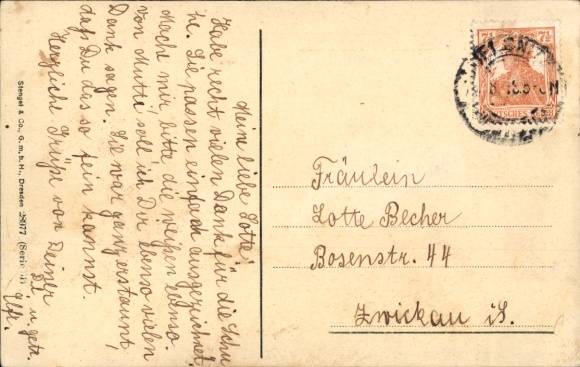 Meine liebe Lotte!
Habe recht vielen Dank für die Schu
he. Sie passen einfach ausgezeichnet.
Mache mir bitte die weißen ebenso.
von Mutti soll ich Dir ebenso vielen
Dank sagen. Sie war ganz erstaunt,
daß Du das so fein kannst.
Herzliche Grüße von Deiner
Dl. u. getr.
Stengel & Co., G. m. b. H., Dresden 28077 (Serie
7½ 7½
DEUTSCHES REICH
Fräulein
Lotte Becher
Bosenstr. 44
Zwickau i/S.